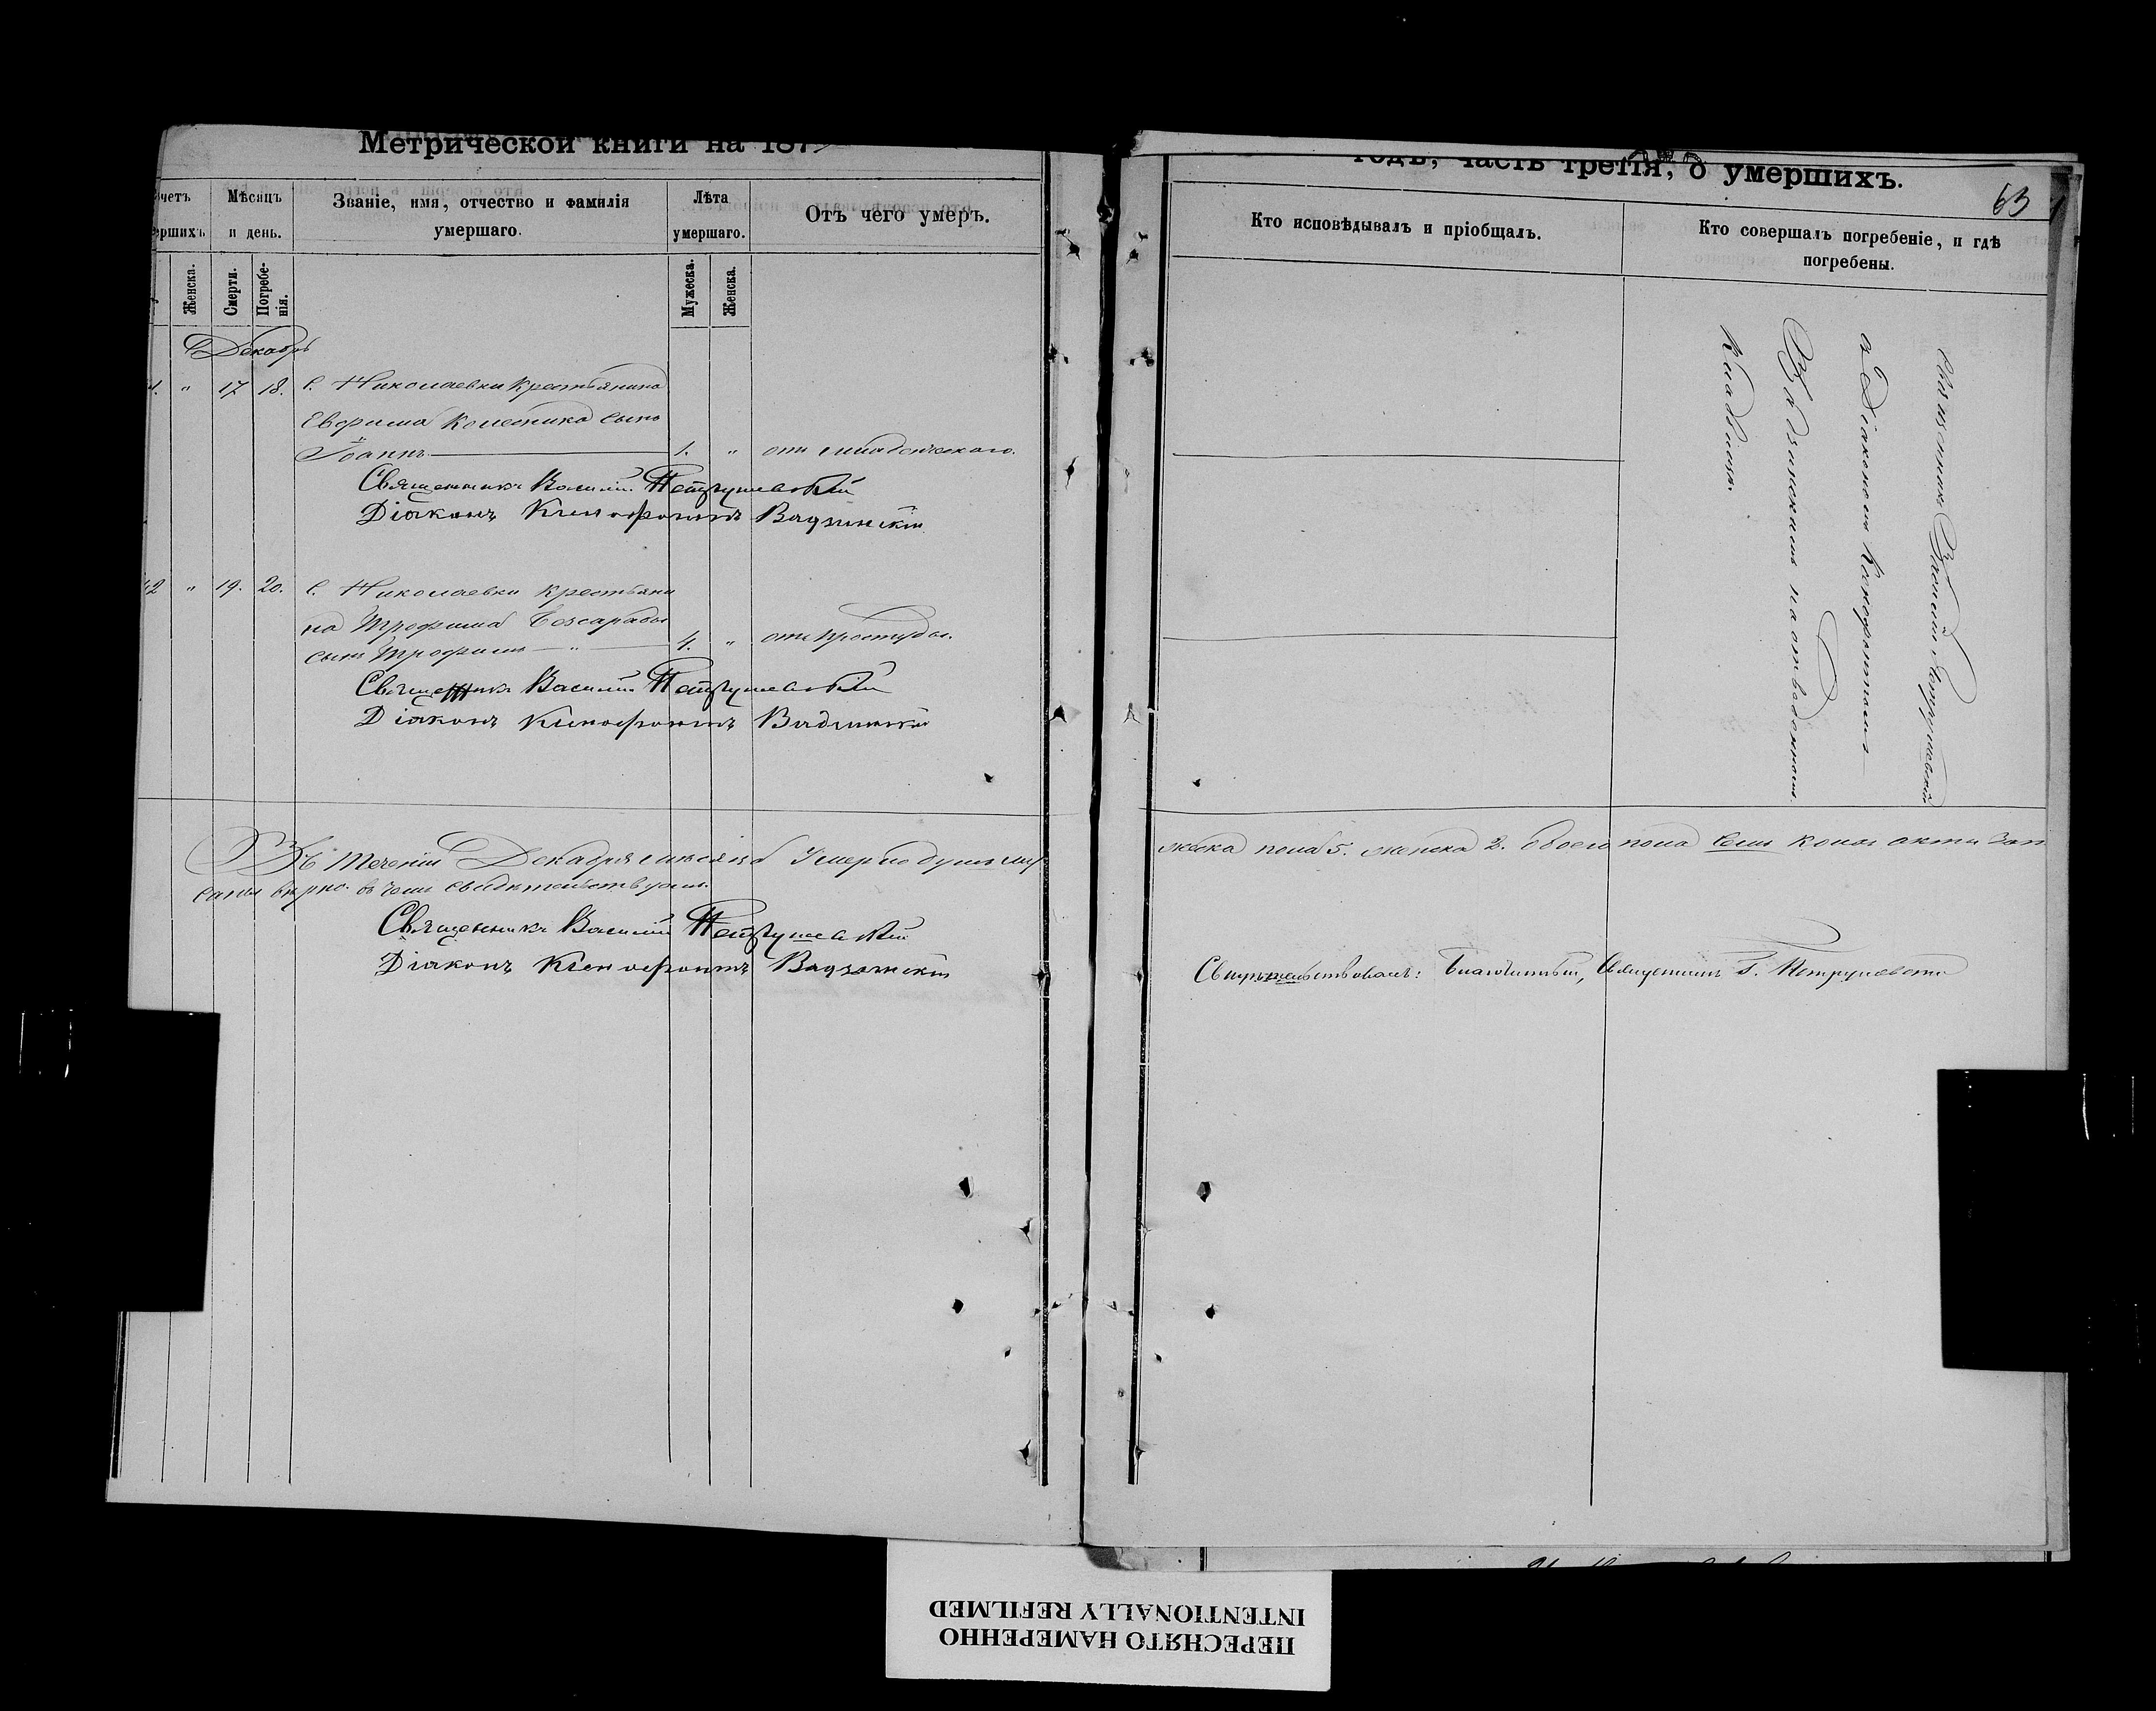 Метрической книги на 187
годъ, часть третія, о умершихъ.
63
четъ
ершихъ
Мѣсяцъ
и день.
Званіе, имя, отчество и фамилія
умершаго.
Лѣта
умершаго.
Отъ чего умеръ.
Кто исповѣдывалъ и пріобщалъ.
Кто совершалъ погребеніе, и гдѣ
погребены.
Женска.
Смерти.
Погребе-
нія.
Мужеска.
Женска.
Декабрь
1. " 17 18. С. Николаевки крестьянина
Евфима Колесника сынъ
Іоаннъ 1. " отъ младенческаго.
Священникъ Василій Петрушевскій
Діаконъ Ксенофонтъ
42 " 19. 20. С. Николаевки крестьяни
на Трофима Безсарабы
сынъ Трофимъ " 4. " отъ простуды.
Священникъ Василій Петрушевскій
Діаконъ Ксенофонтъ
Священникъ Василій Петрушевскій
съ Діакономъ Ксенофонтомъ
на отведенномъ
кладбищѣ.
Въ теченіи Декабря мѣсяца умерло душъ му
жеска пола 5. женска 2. обоего пола семь коихъ акты запи
саны вѣрно. въ чемъ свидѣтельствуемъ.
Священникъ Василій Петрушевскій
Діаконъ Ксенофонтъ
Свидѣтельствовалъ: Благочинный, Священникъ Петрушевскій
ПЕРЕСНЯТО НАМЕРЕННО
INTENTIONALLY REFILMED